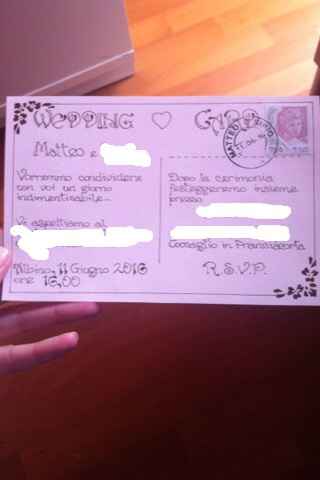 WEDDING ♡ CARD
Matteo e
Vorremmo condividere
con voi un giorno
indimenticabile...
Vi aspettiamo al
Albino, 11 Giugno 2016
ore 16,00
Dopo la cerimonia
festeggeremo insieme
presso
Coccaglio in Franciacorta
R.S.V.P.
MATTEO